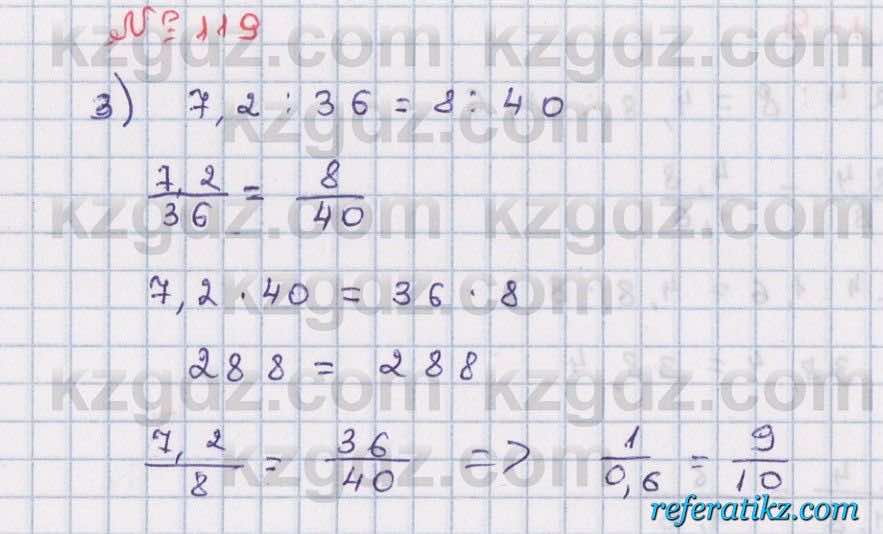 № 119
3) 7,2 : 36 = 8 : 40
7,2/36 = 8/40
7,2 · 40 = 36 · 8
288 = 288
7,2/8 = 36/40 => 1/0,6 = 9/10
kzgdz.com kzgdz.com
kzgdz.com
kzgdz.com kzgdz.com
kzgdz.com
kzgdz.com kzgdz.com
kzgdz.com
referatikz.com